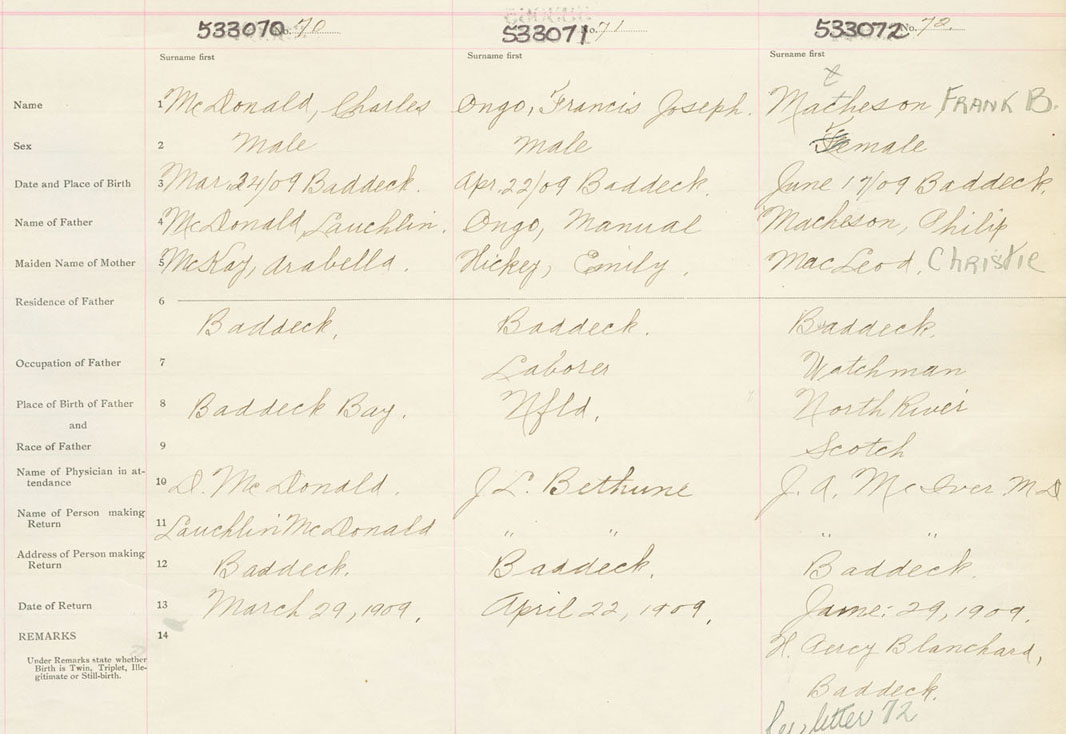 533070 No. 70 533071 No. 71 533072 No. 72
Surname first Surname first Surname first
Name 1 McDonald, Charles Ongo, Francis Joseph. Matheson FRANK B.
Sex 2 Male Male Female
Date and Place of Birth 3 Mar. 24/09 Baddeck. Apr. 22/09 Baddeck. June 17/09 Baddeck.
Name of Father 4 McDonald, Lauchlin. Ongo, Manual Matheson, Philip
Maiden Name of Mother 5 McKay, Arabella. Hickey, Emily. MacLeod, Christie
Residence of Father 6
Baddeck. Baddeck. Baddeck.
Occupation of Father 7 Laborer Watchman
Place of Birth of Father 8 Baddeck Bay. Nfld. North River
and
Race of Father 9 Scotch
Name of Physician in at-
tendance 10 D. McDonald. J L. Bethune J. A. McIver M D
Name of Person making
Return 11 Lauchlin McDonald " " " "
Address of Person making
Return 12 Baddeck. Baddeck. Baddeck.
Date of Return 13 March 29, 1909. April 22, 1909. June: 29, 1909.
REMARKS 14 H. Percy Blanchard,
Under Remarks state whether
Birth is Twin, Triplet, Ille-
gitimate or Still-birth.
Baddeck.
letter 72